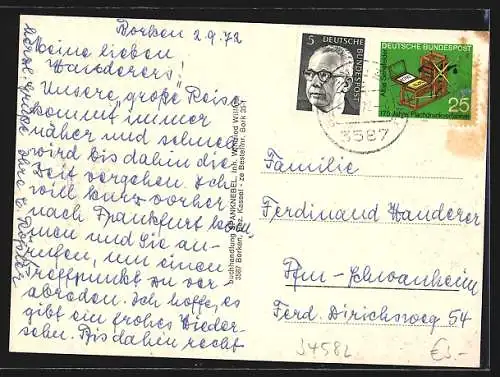 Borken 2.9.72
Meine lieben
Wanderers!
Unsere große Reise
kommt immer
näher und schnell
wird bis dahin die
Zeit vergehen. Ich
will kurz vorher
nach Frankfurt kom-
men und Sie an-
rufen, um einen
Treffpunkt zu ver-
abreden. Ich hoffe, es
gibt ein frohes Wieder-
sehen. Bis dahin recht
herzl. Grüße Ihre
buchhandlung SPANKNEBEL Inh. Wilfried
3587 Borken, Bez. Kassel - ze Bestellnr. Bork 35/1
5
DEUTSCHE BUNDESPOST
DEUTSCHE BUNDESPOST
Alois Senefelder
25
175 Jahre Flachdruckverfahren
3587
Familie
Ferdinand Wanderer
Ffm.-Schwanheim
Ferd. Dirichsweg 54
34582
€3.-